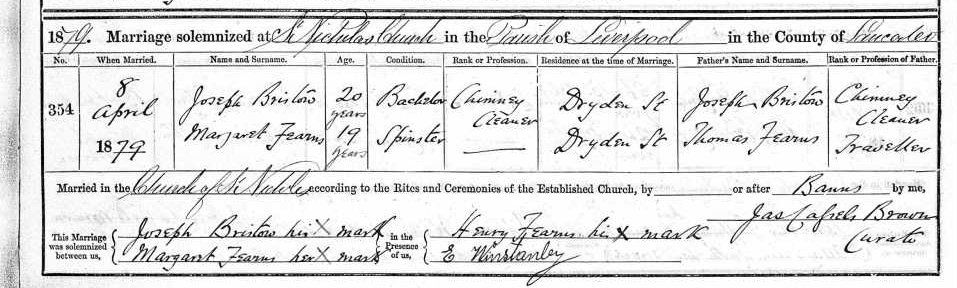 1879. Marriage solemnized at St Nicholas Church in the Parish of Liverpool in the County of Lancaster
No. When Married. Name and Surname. Age. Condition. Rank or Profession. Residence at the time of Marriage. Father's Name and Surname. Rank or Profession of Father.
354 8 April 1879 Joseph Bristow 20 years Bachelor Chimney Cleaner Dryden St Joseph Bristow Chimney Cleaner
Margaret Fearns 19 years Spinster — Dryden St Thomas Fearns Traveller
Married in the Church of St Nichls according to the Rites and Ceremonies of the Established Church, by — or after Banns by me,
Jas Cassels Brown
Curate
This Marriage was solemnized between us, Joseph Bristow his X mark in the Presence of us, Henry Fearns his X mark
Margaret Fearns her X mark E Winstanley